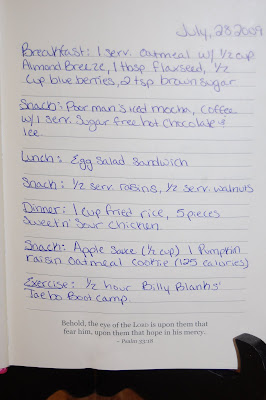 July, 28 2009
Breakfast: 1 serv. oatmeal w/ 1/2 cup
Almond Breeze, 1 tbsp flaxseed, 1/2
cup blueberries, 2 tsp brown sugar
Snack: Poor man's iced mocha, coffee
w/ 1 serv. sugar free hot chocolate &
ice.
Lunch: Egg salad sandwich
Snack: 1/2 serv. raisins, 1/2 serv. walnuts
Dinner: 1 cup fried rice, 5 pieces
Sweet n' Sour Chicken.
Snack: Apple Sauce (1/2 cup) 1 Pumpkin
raisin oatmeal cookie (125 calories)
Exercise: 1/2 hour Billy Blanks'
Taebo Boot Camp.
Behold, the eye of the LORD is upon them that
fear him, upon them that hope in his mercy.
~ Psalm 33:18